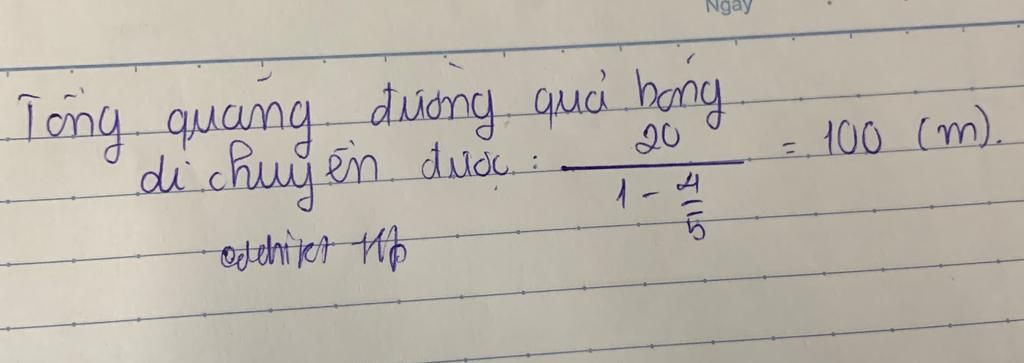 Ngày
Tổng quãng đường quả bóng
di chuyển được : \frac{20}{1 - \frac{4}{5}} = 100 (m).